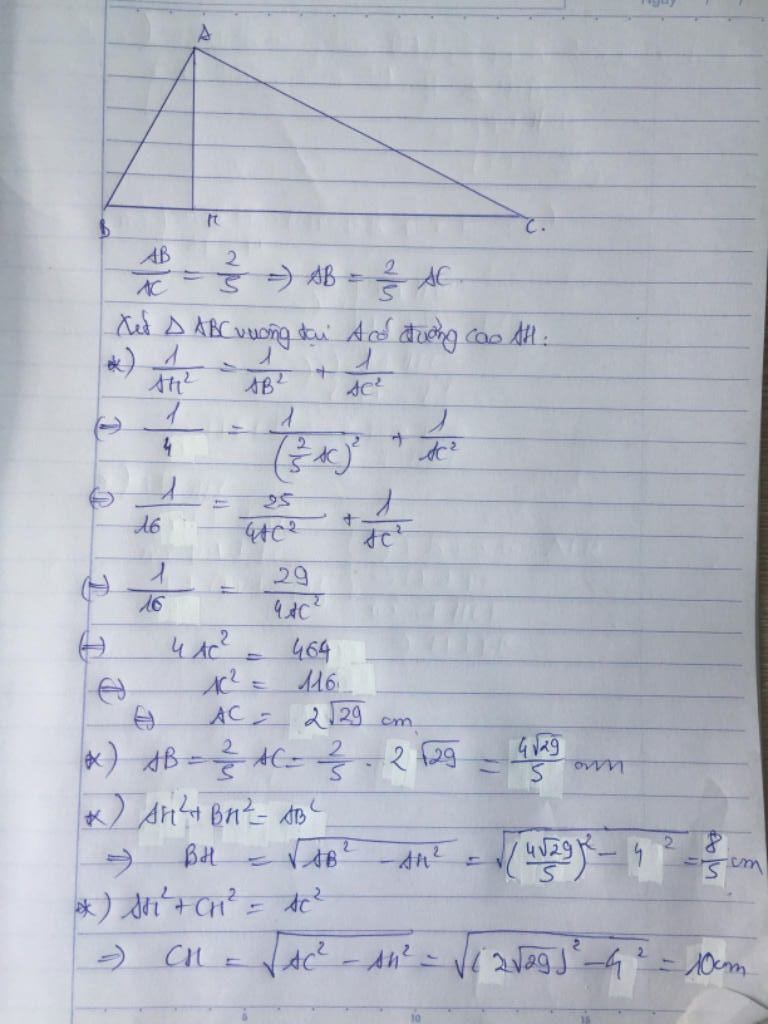 Ngày
A
B H C.
AB/AC = 2/5 => AB = 2/5 AC
Xét Δ ABC vuông tại A có đường cao AH:
*) 1/AH² = 1/AB² + 1/AC²
(=) 1/4 = 1/(2/5 AC)² + 1/AC²
(=) 1/16 = 25/4AC² + 1/AC²
(=) 1/16 = 29/4AC²
(=) 4AC² = 464
(=) AC² = 116
(=) AC = 2√29 cm
*) AB = 2/5 AC = 2/5 . 2√29 = 4√29/5 cm
*) AH² + BH² = AB²
=> BH = √(AB² - AH²) = √((4√29/5)² - 4²) = 8/5 cm
*) AH² + CH² = AC²
=> CH = √(AC² - AH²) = √((2√29)² - 4²) = 10cm
5 10 15